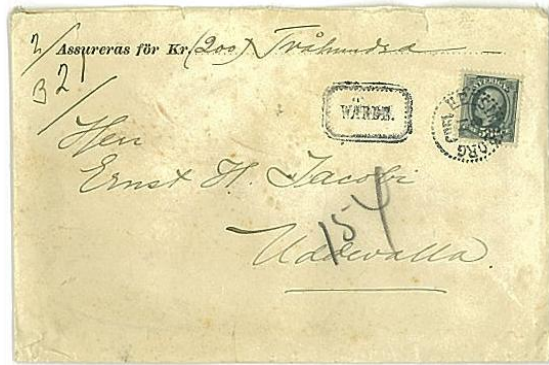 2/
Assureras för Kr. (200) Tvåhundra
32/
VÄRDE.
SVERIGE
Herr
Ernst H. Jacobi
154
Uddevalla.